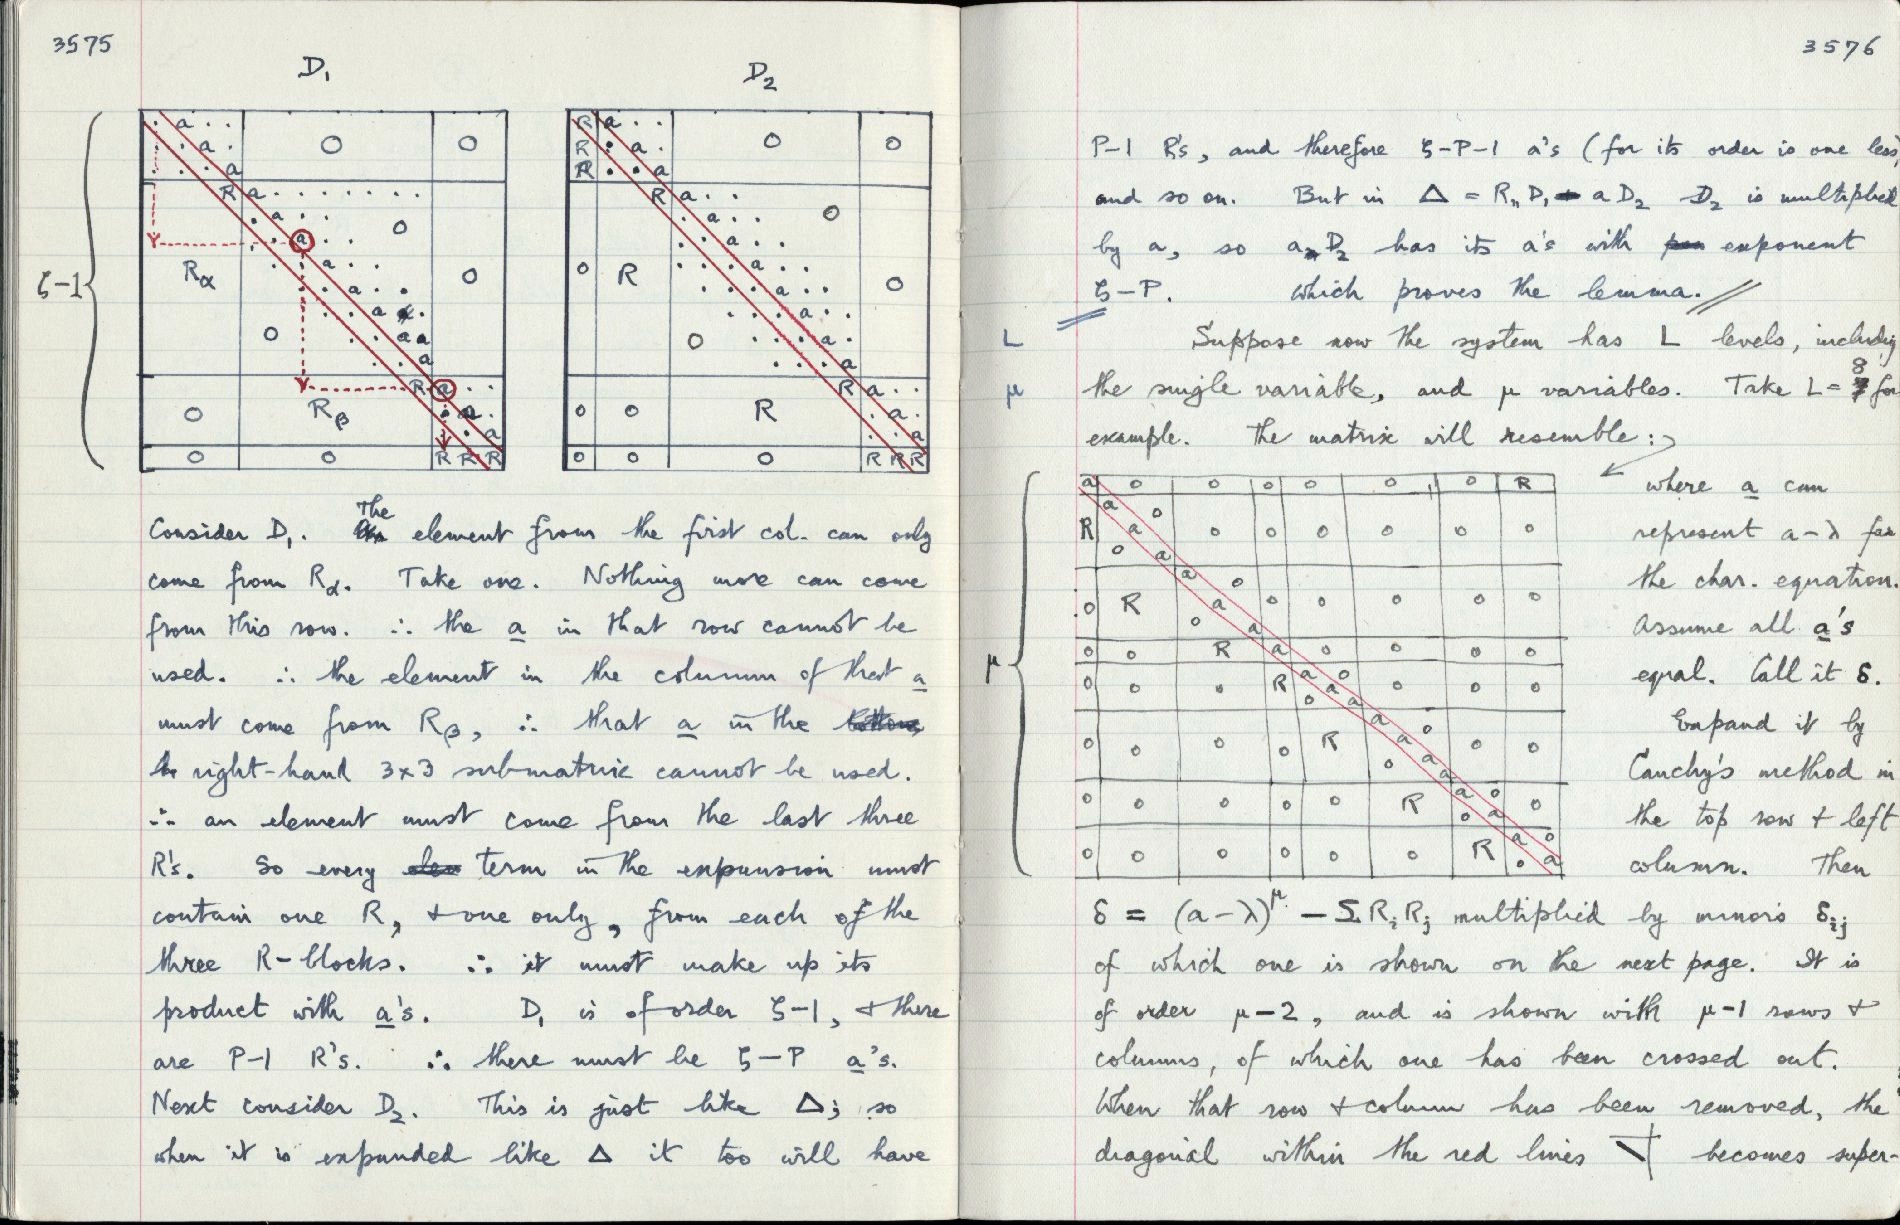 3575
D₁
D₂
ζ-1
Rα
Rβ
Consider D₁. The element from the first col. can only
come from Rα. Take one. Nothing more can come
from this row. ∴ the a in that row cannot be
used. ∴ the element in the column of that a
must come from Rβ, ∴ that a in the
right-hand 3×3 submatrix cannot be used.
∴ an element must come from the last three
R's. So every term in the expansion must
contain one R, & one only, from each of the
three R-blocks. ∴ it must make up its
product with a's. D₁ is of order ζ-1, & there
are P-1 R's. ∴ there must be ζ-P a's.
Next consider D₂. This is just like Δ; so
when it is expanded like Δ it too will have
3576
P-1 R's, and therefore ζ-P-1 a's (for its order is one less)
and so on. But in Δ = RₙD₁ - aD₂ D₂ is multiplied
by a, so a D₂ has its a's with exponent
ζ-P. Which proves the lemma. //
L Suppose now the system has L levels, including
μ the single variable, and μ variables. Take L = 8 for
example. The matrix will resemble :→
μ
where a can
represent a-λ for
the char. equation.
Assume all a's
equal. Call it δ.
Expand it by
Cauchy's method in
the top row & left
column. Then
δ = (a-λ)^μ - Σ RᵢRⱼ multiplied by minors δᵢⱼ
of which one is shown on the next page. It is
of order μ-2, and is shown with μ-1 rows &
columns, of which one has been crossed out.
When that row & column has been removed, the
diagonal within the red lines becomes super-